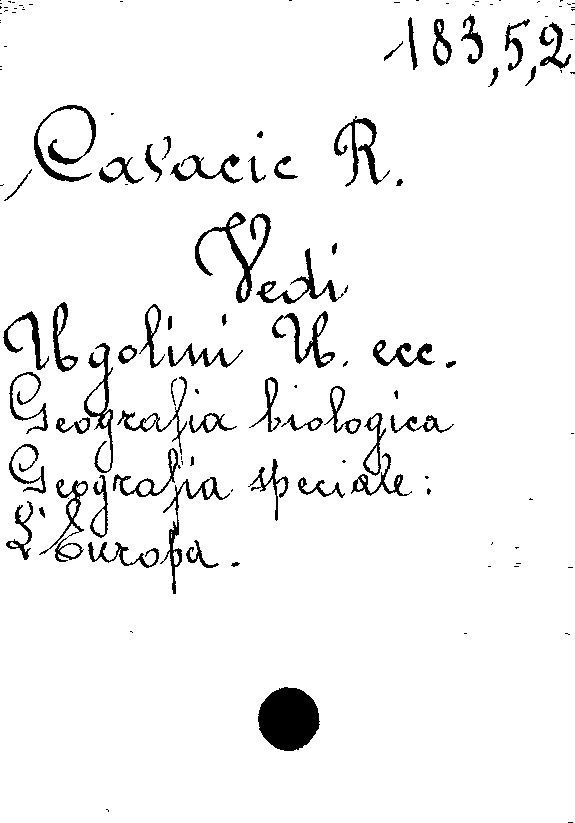 183,5,2
Cavacic R.
Vedi
Ugolini U. ecc.
Geografia biologica
Geografia speciale:
L'Europa.